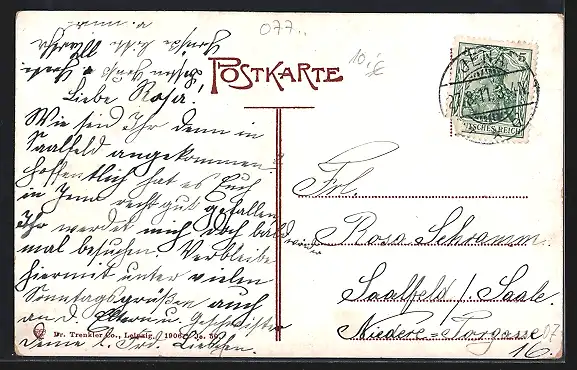 077..
10.-€
POSTKARTE
JENA
27.8.11. 3-4N.
5
DEUTSCHES REICH
Liebe Rosa!
Wie seid Ihr denn in
Saalfeld angekommen.
Hoffentlich hat es Euch
in Jena recht gut gefallen
Ihr werdet mich doch bald wieder
mal besuchen. Verbleibe
hiermit unter vielen
Sonntagsgrüßen auch
an d. Eltern u. Geschwister
Deine l. Frd. Liebchen.
Frl.
Rosa Schramm.
Saalfeld / Saale.
Niedere=Torgasse
16.
Dr. Trenkler Co., Leipzig. 1906. Je. 56.